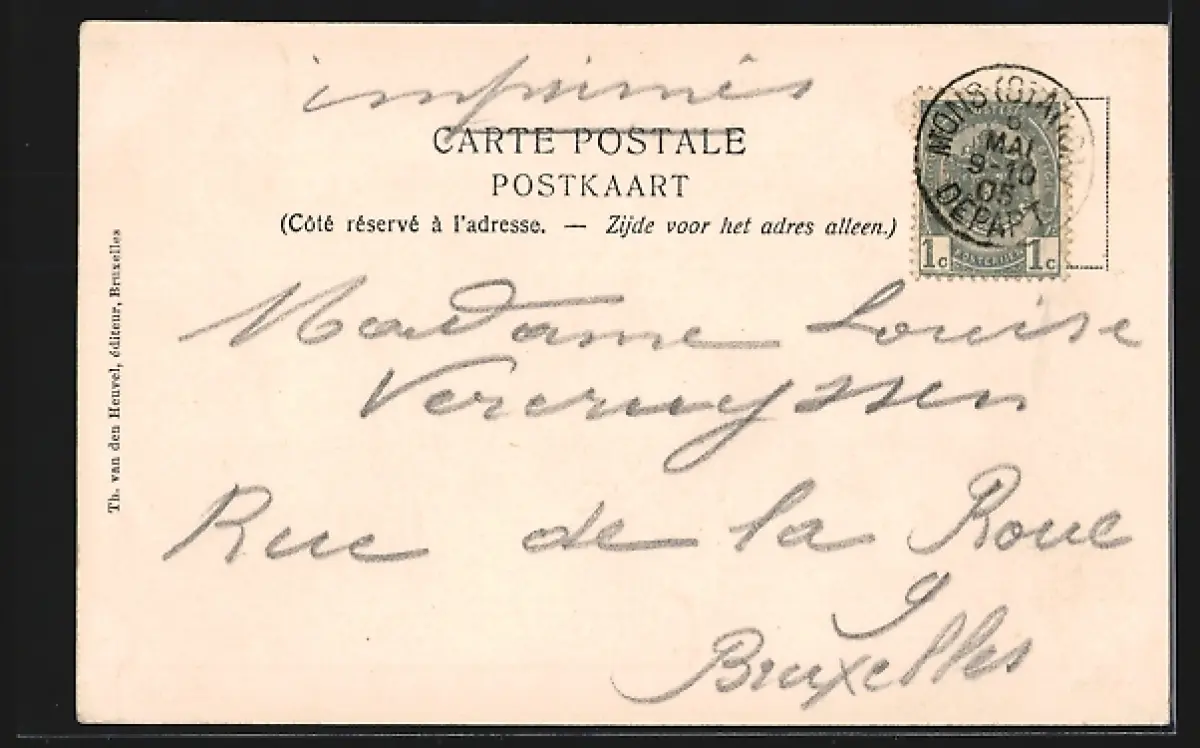 imprimés
CARTE POSTALE
POSTKAART
(Côté réservé à l'adresse. — Zijde voor het adres alleen.)
MONS (STATION)
MAI
9-10
05
DEPART
1c 1c
Madame Louise
Vercruyssen
Rue de la Roue
9
Bruxelles
Th. van den Heuvel, éditeur, Bruxelles